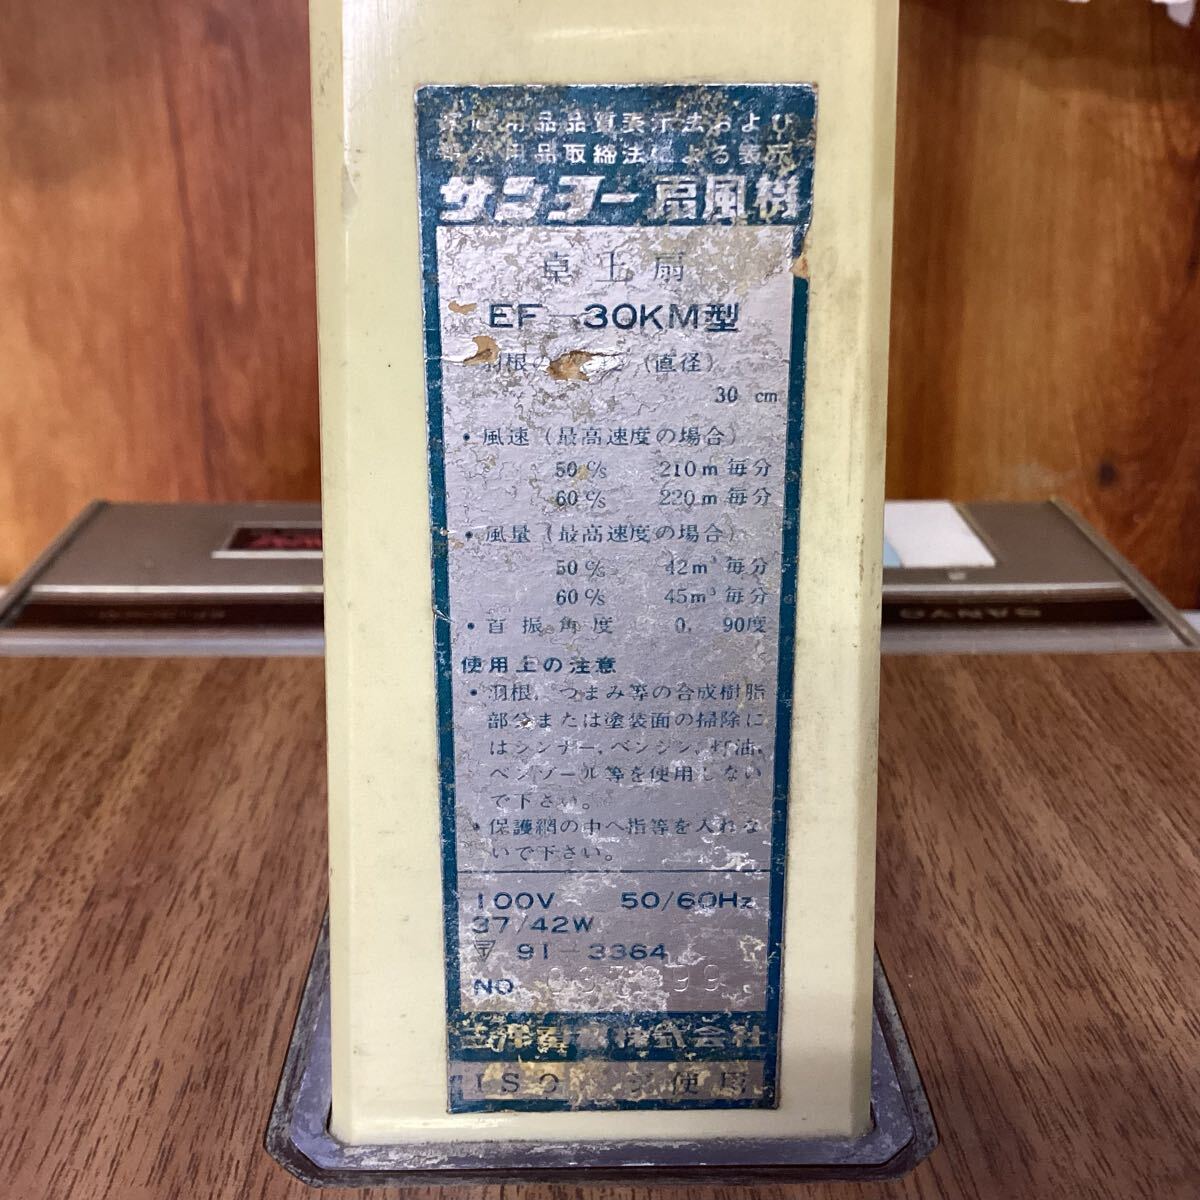 家庭用品品質表示法および
電気用品取締法による表示
サンヨー扇風機
卓上扇
EF-30KM型
羽根の (直径)
30 cm
・風速(最高速度の場合)
50 c/s 210m 毎分
60 c/s 220m 毎分
・風量(最高速度の場合)
50 c/s 42m³ 毎分
60 c/s 45m³ 毎分
・首振角度 0, 90度
使用上の注意
・羽根, つまみ等の合成樹脂
部分または塗装面の掃除に
はシンナー, ベンジン, 灯油,
ベンゾール等を使用しない
で下さい。
・保護網の中へ指等を入れな
いで下さい。
100V 50/60Hz
37/42W
〒 91-3364
NO
三洋電機株式会社
ISO
SANYO